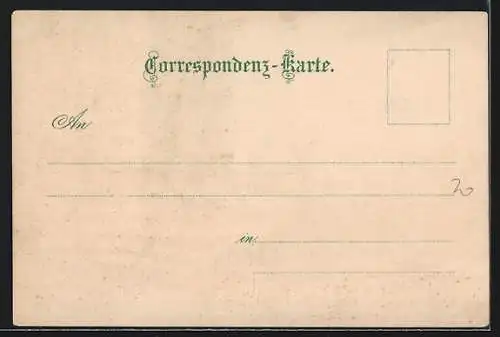 Correspondenz-Karte.
An
20
in